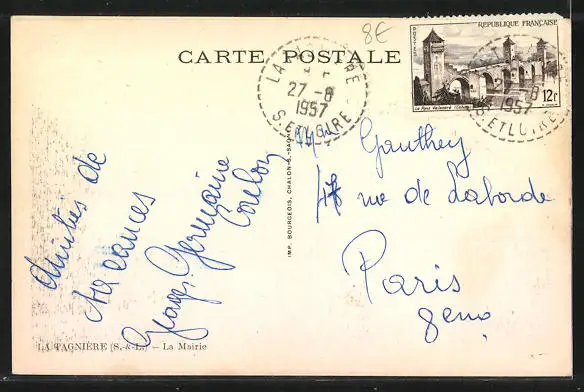 8€
CARTE POSTALE
REPUBLIQUE FRANÇAISE
POSTES
12F
Le Pont Valentré (Cahors)
27-8
1957
S. ET LOIRE
27-8
1957
S. ET LOIRE
Amitiés de
vacances
Georges Germaine
IMP. BOURGEOIS, CHALON-S-SAÔNE
Gauthey
48 rue de Laborde
Paris
8eme
LA TAGNIÈRE (S.-&-L.) — La Mairie